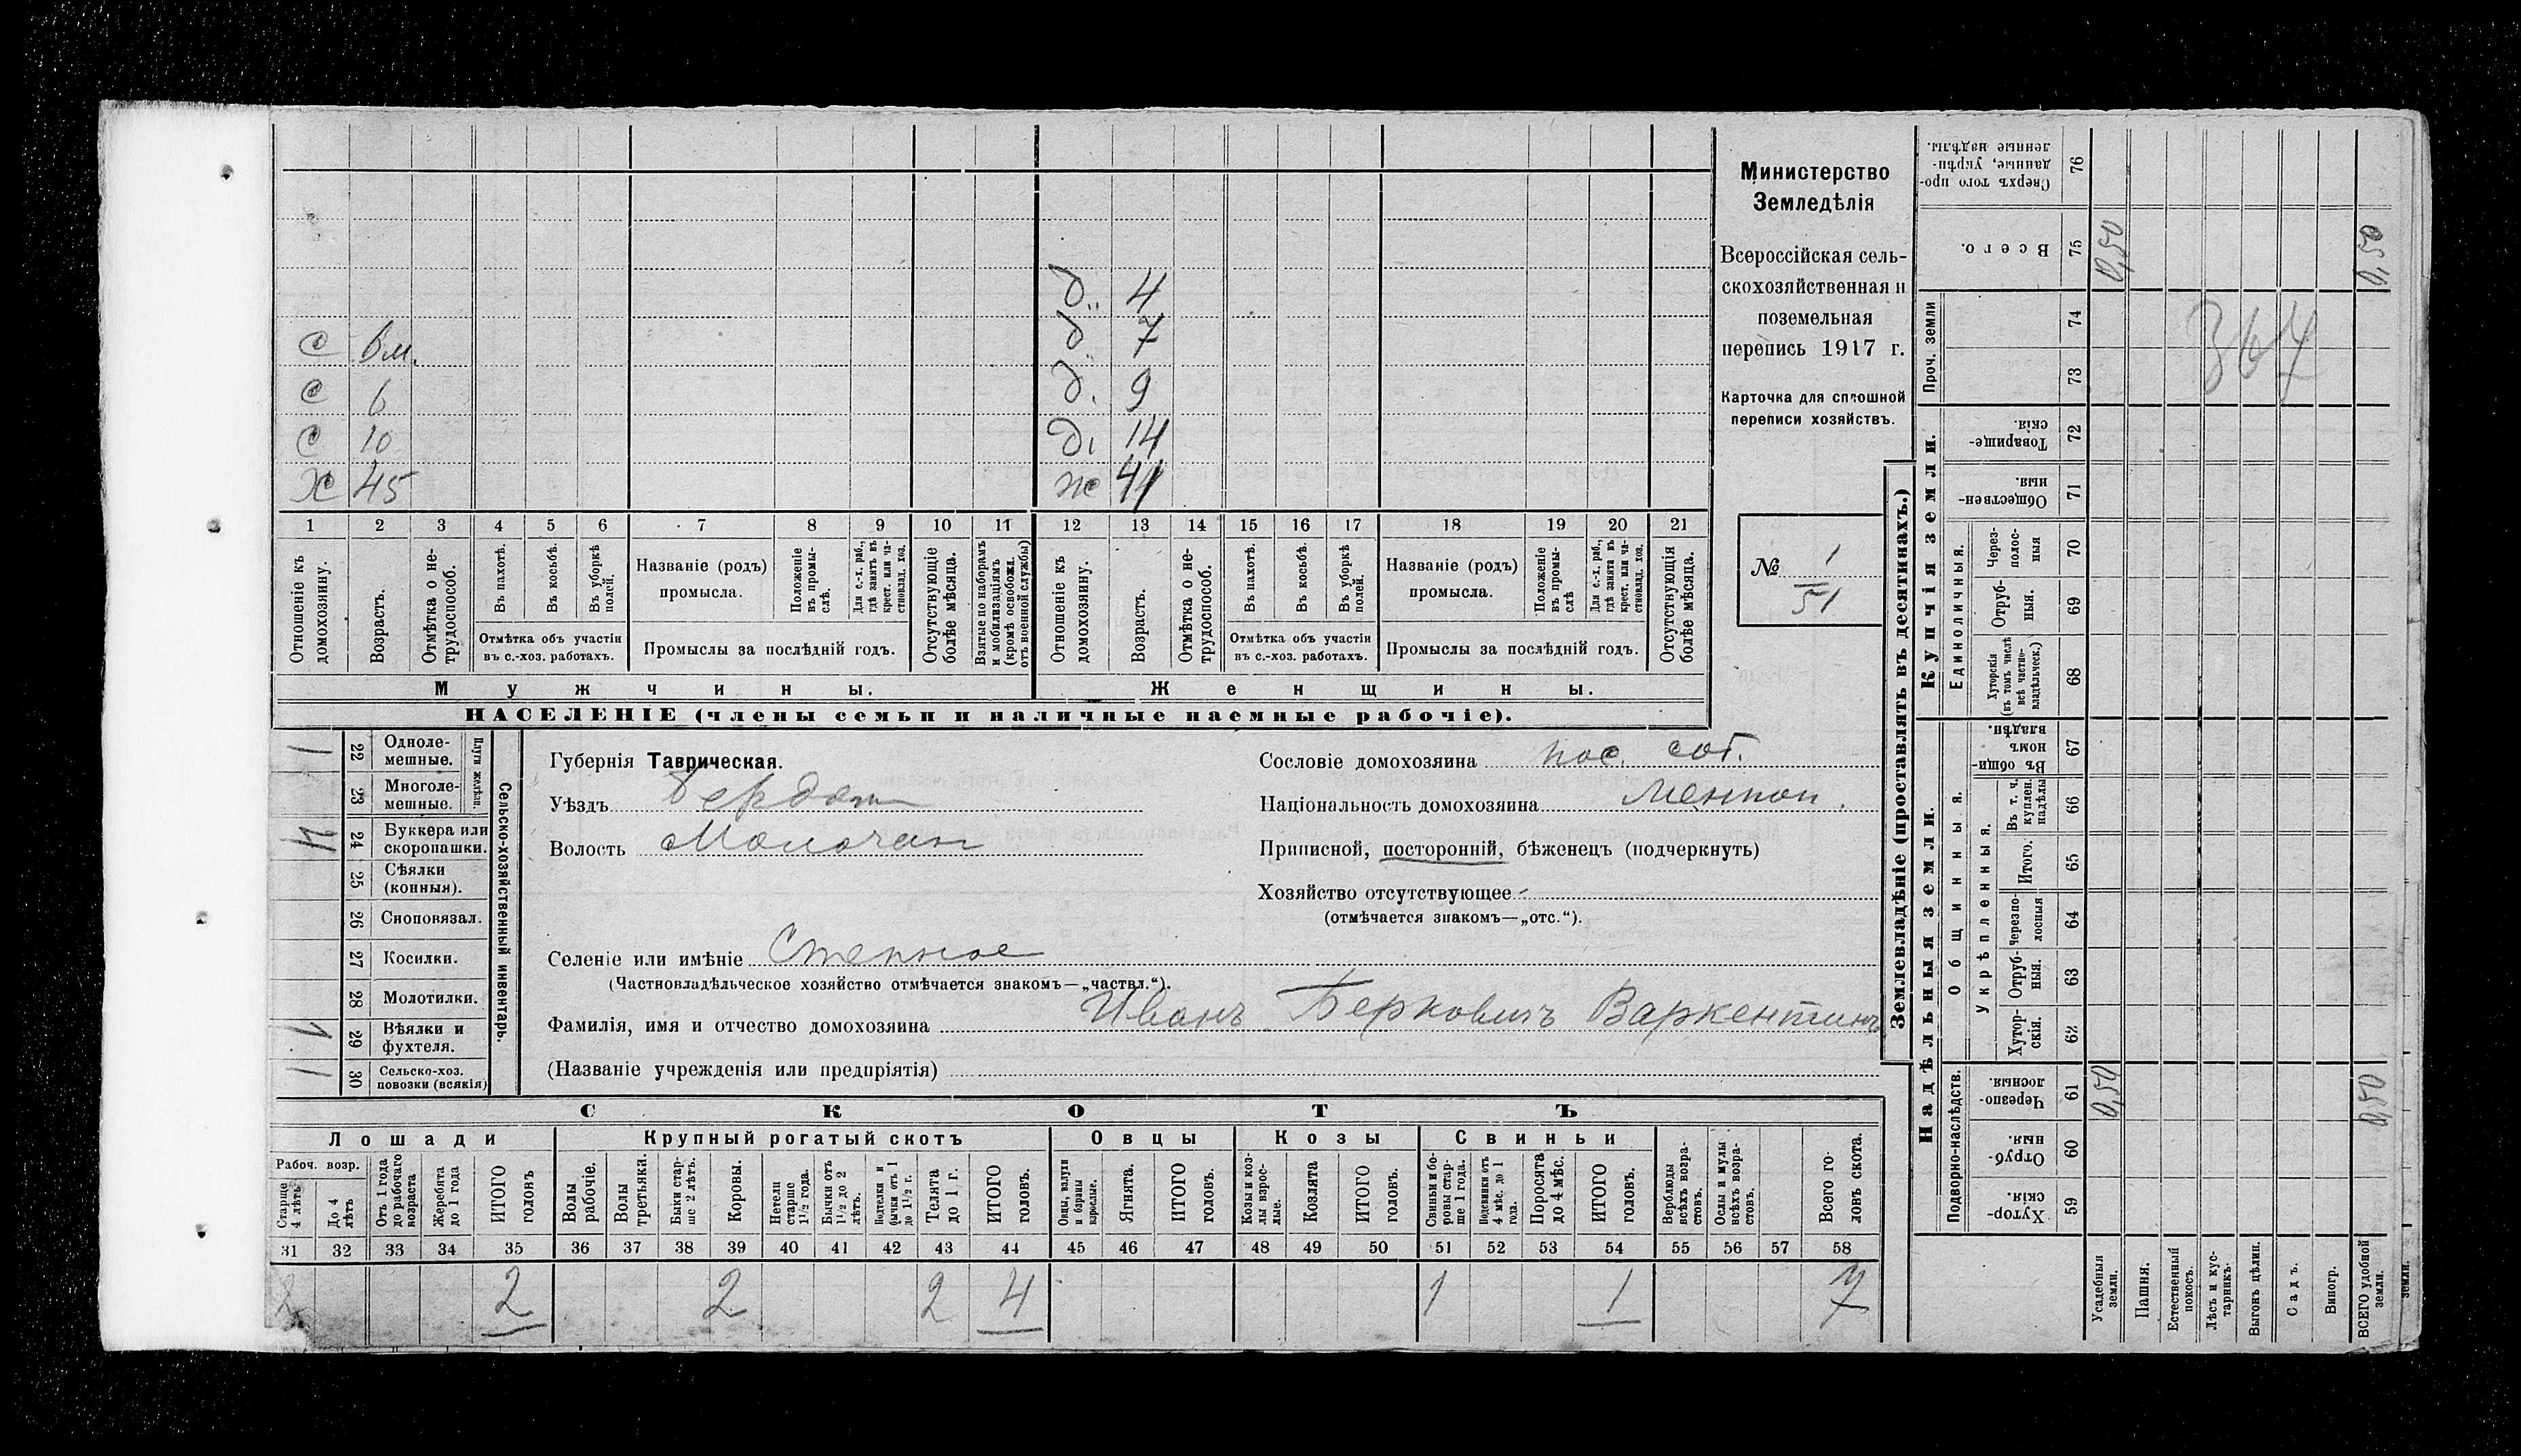 Министерство
Земледѣлія
Всероссійская сель-
скохозяйственная и
поземельная
перепись 1917 г.
Карточка для сплошной
переписи хозяйствъ.
№ 1
51
д. 4
д. 7
с 6 м.
д. 9
с 6
д. 14
с 10
ж 41
х 45
1 2 3 4 5 6 7 8 9 10 11 12 13 14 15 16 17 18 19 20 21
Отношеніе къ домохозяину.
Возрастъ.
Отмѣтка о не-трудоспособ.
Въ пахотѣ.
Въ косьбѣ.
Въ уборкѣ полей.
Отмѣтка объ участіи
въ с.-хоз. работахъ.
Названіе (родъ)
промысла.
Положеніе въ промы-слѣ.
Для с.-х. раб., гдѣ занятъ въ крест. или ча-стновлад. хоз.
Промыслы за послѣдній годъ.
Отсутствующіе болѣе мѣсяца.
Взятые по наборамъ и мобилизаціямъ (кромѣ освобожд. отъ военной службы)
Отношеніе къ домохозяину.
Возрастъ.
Отмѣтка о не-трудоспособ.
Въ пахотѣ.
Въ косьбѣ.
Въ уборкѣ полей.
Отмѣтка объ участіи
въ с.-хоз. работахъ.
Названіе (родъ)
промысла.
Положеніе въ промы-слѣ
Для с.-х. раб., гдѣ занята въ крест. или ча-стновлад. хоз.
Промыслы за послѣдній годъ.
Отсутствующія болѣе мѣсяца.
Мужчины.
Женщины.
НАСЕЛЕНІЕ (члены семьи и наличные наемные рабочіе).
Сельско-хозяйственный инвентарь.
Плуги желѣзн.
1 22 Одноле-мешные.
23 Многоле-мешные.
24 Буккера или скоропашки.
25 Сѣялки (конныя).
26 Сноповязал.
27 Косилки.
28 Молотилки.
1 29 Вѣялки и фухтеля.
1 30 Сельско-хоз. повозки (всякія)
Губернія Таврическая.
Уѣздъ Бердян
Волость Молочан
Сословіе домохозяина пос. соб.
Національность домохозяина Меннон.
Приписной, посторонній, бѣженецъ (подчеркнуть)
Хозяйство отсутствующее -
(отмѣчается знакомъ—„отс.“).
Селеніе или имѣніе Степное
(Частновладѣльческое хозяйство отмѣчается знакомъ—„частвл.“).
Фамилія, имя и отчество домохозяина Иванъ Берковичъ Варкентинъ
(Названіе учрежденія или предпріятія)
СКОТЪ
Лошади
Крупный рогатый скотъ
Овцы
Козы
Свиньи
Рабоч. возр.
Старше 4 лѣтъ
До 4 лѣтъ
Отъ 1 года до рабочаго возраста
Жеребята до 1 года
ИТОГО головъ
Волы рабочіе.
Волы третьяки.
Быки стар-ше 2 лѣтъ.
Коровы.
Нетели старше 1½ года.
Бычки отъ 1½ до 2 лѣтъ.
Подтелки и бычки отъ 1 до 1½ г.
Телята до 1 г.
ИТОГО головъ.
Овцы, валухи и бараны взрослые.
Ягнята.
ИТОГО головъ.
Козы и коз-лы взрос-лые.
Козлята
ИТОГО головъ.
Свиньи и бо-ровы стар-ше 1 года.
Подсвинки отъ 4 мѣс. до 1 года.
Поросята до 4 мѣс.
ИТОГО головъ.
Верблюды всѣхъ возра-стовъ.
Ослы и мулы всѣхъ возра-стовъ.
Всего го-ловъ скота.
31 32 33 34 35 36 37 38 39 40 41 42 43 44 45 46 47 48 49 50 51 52 53 54 55 56 57 58
2 2 2 2 4 1 1 7
Землевладѣніе (проставлять въ десятинахъ.)
Купчія земли.
Надѣльныя земли.
Проч. земли
Единоличныя.
Общинныя.
Укрѣпленныя.
Подворно-наслѣдств.
Сверхъ того про-данные, укрѣп-ленные надѣлы. 76
Всего. 75
74
73
Товарище-скія. 72
Обществен-ныя. 71
Через-полос-ныя 70
Отруб-ныя. 69
Хуторскія (въ томъ числѣ всѣ частно-владѣльческ.) 68
Въ общи-номъ владѣн. 67
Въ т. ч. куплен. надѣлы 66
Итого. 65
Черезпо-лосныя 64
Отруб-ныя. 63
Хутор-скія. 62
Черезпо-лосныя. 61
Отруб-ныя. 60
Хутор-скія. 59
Усадебныя земли.
Пашня.
Естественный покосъ.
Лѣсъ и кус-тарникъ.
Выгонъ цѣлин.
Садъ.
Виногр.
ВСЕГО удобной земли.
земли.
0,50 0,50
367
0,50 0,50